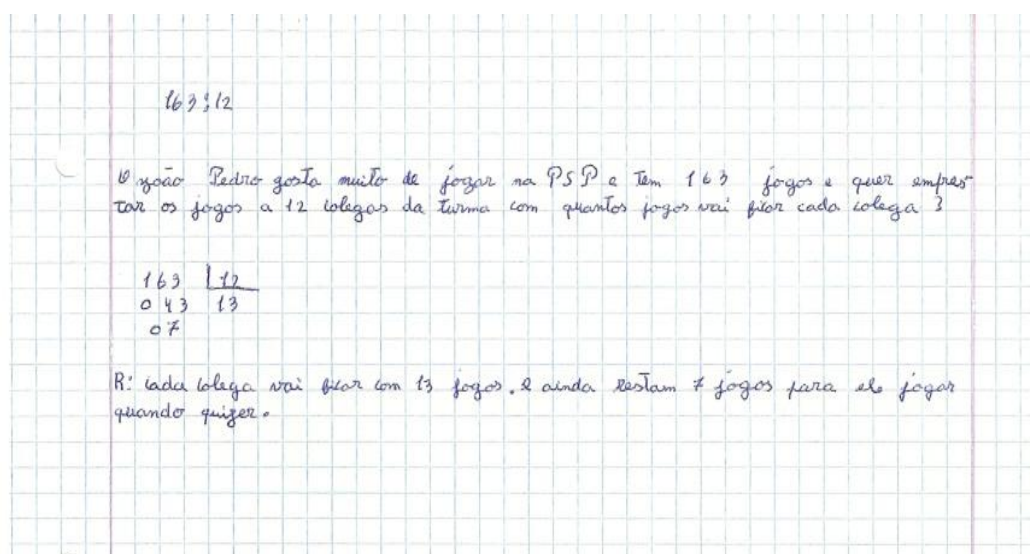 163:12
O João Pedro gosta muito de jogar na PSP e tem 163 jogos e quer empres-
tar os jogos a 12 colegas da turma com quantos jogos vai ficar cada colega?
163 12
043 13
07
R: cada colega vai ficar com 13 jogos. e ainda restam 7 jogos para ele jogar
quando quizer.